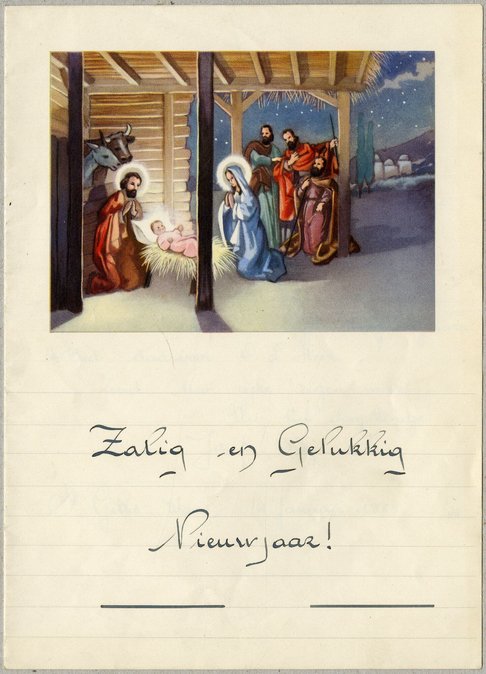 Zalig en Gelukkig
Nieuwjaar!